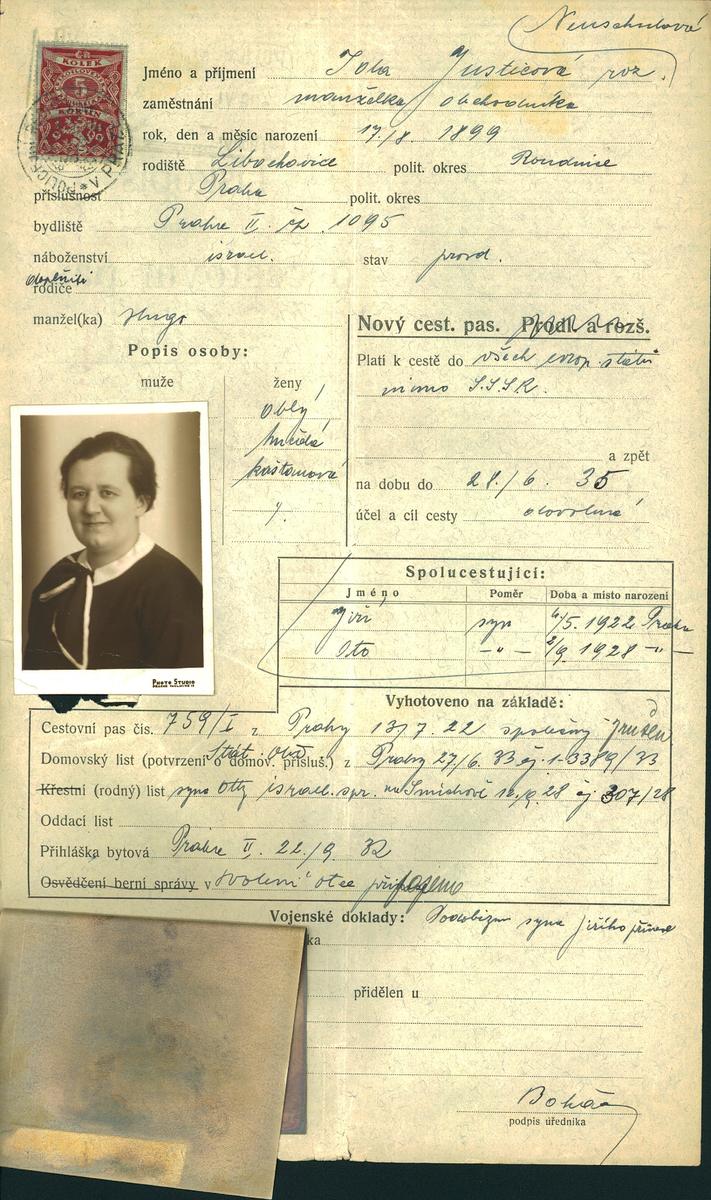 Neuschulová
ČR
KOLEK
5
KORUN
Jméno a příjmení Ida Justicová roz.
zaměstnání manželka obchodníka
rok, den a měsíc narození 17/8. 1899
rodiště Libochovice polit. okres Roudnice
příslušnost Praha polit. okres
bydliště Praha II. čp. 1095
náboženství israel. stav provd.
doplniti
rodiče
manžel(ka) Hugo
Nový cest. pas. Prodl. a rozš.
Popis osoby:
Platí k cestě do všech evrop. států
mimo S.S.S.R.
muže ženy
oblý
hnědá
kaštanová
a zpět
na dobu do 28./6. 35
účel a cíl cesty dovolená
Spolucestující:
Jméno Poměr Doba a místo narození
Jiří syn 4/5. 1922 Praha
Oto -"- 2/9. 1928 -"-
PHOTO STUDIO
Vyhotoveno na základě:
Cestovní pas čís. 759/I z Prahy 13/7. 22 společný zrušen
stát. obč.
Domovský list (potvrzení o domov. přísluš.) z Prahy 27/6. 33 čj. 1-3389/33
Křestní (rodný) list syna Otty israel. spr. na Smíchově 12/9. 28 čj. 307/28
Oddací list
Přihláška bytová Praha II. 22/9 32
Osvědčení berní správy v svolení otce připojeno
Vojenské doklady: Podobizna syna Jiřího
přidělen u
Boháč
podpis úředníka